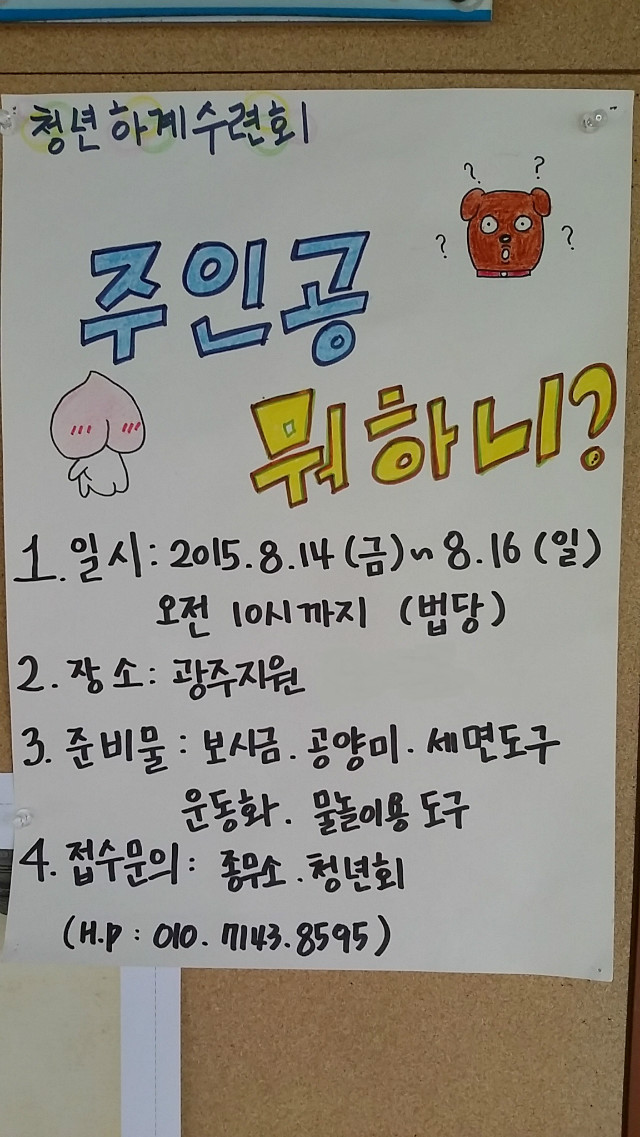 청년 하계 수련회
? ?
? ?
주인공
뭐하니?
1. 일시: 2015.8.14 (금)~8.16 (일)
오전 10시까지 (법당)
2. 장소: 광주지원
3. 준비물: 보시금. 공양미. 세면도구
운동화. 물놀이용 도구
4. 접수문의: 종무소. 청년회
(H.P: 010. 7143. 8595)